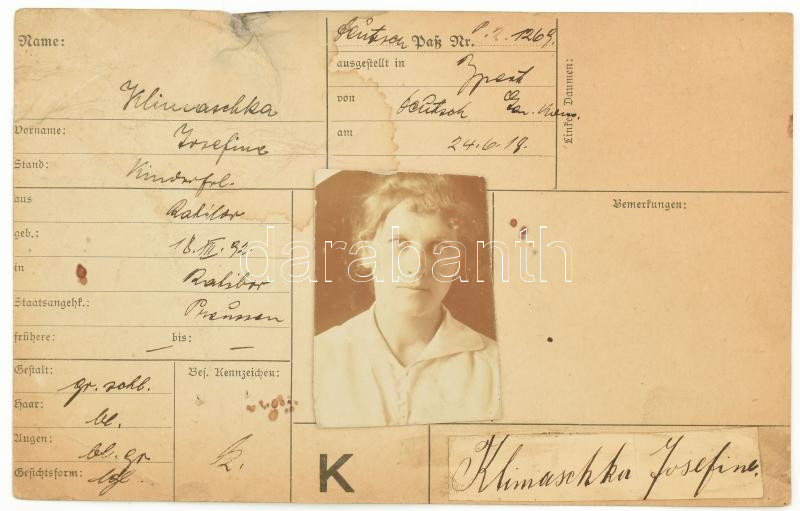 Name:
Klimaschka
Vorname:
Josefine
Stand:
Kinderfrl.
aus
Ratibor
geb.:
18. III. 92
in
Ratibor
Staatsangehk.:
Preussen
frühere: — bis: —
Gestalt:
gr. schl.
Haar:
bl.
Augen:
bl. gr
Gesichtsform:
lgl.
Bes. Kennzeichen:
K
Deutsch Paß Nr. P. 2. 1269.
ausgestellt in
von
deutsch
am
24.6.18.
Linker Daumen:
Bemerkungen:
Klimaschka Josefine.
darabanth